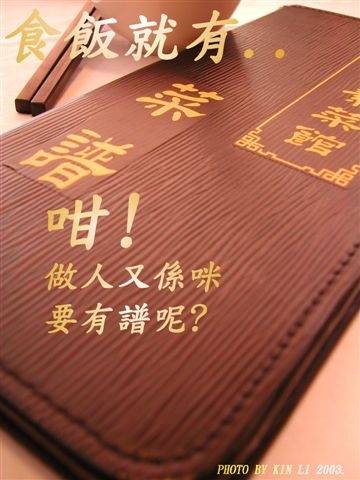 食飯就有..
菜譜
菜館
咁!
做人又係咪
要有譜呢?
PHOTO BY KIN LI 2003.